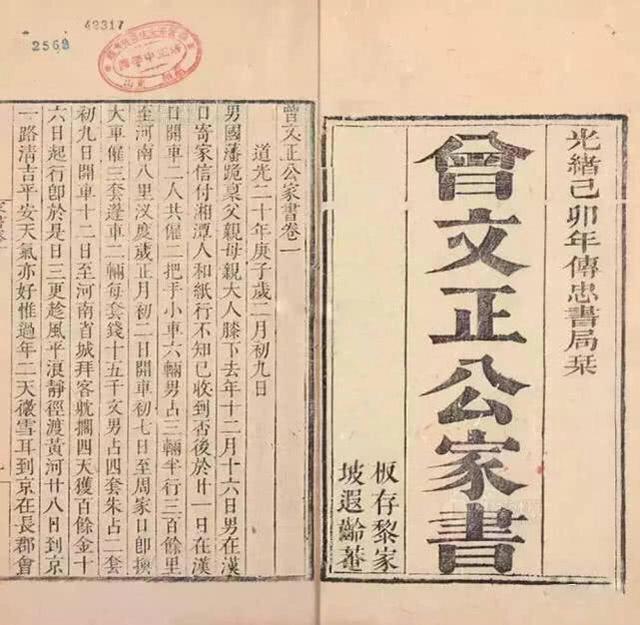 光緒己卯年傳忠書局栞
曾文正公家書
板存黎家
坡遐齡菴
42317
2562
曾文正公家書卷一
道光二十年庚子歲二月初九日
男國藩跪稟父親母親大人膝下去年十二月十六日男在漢
口寄家信付湘潭人和紙行不知已收到否後於廿一日在漢
口開車二人共僱二把手小車六輛男占三輛半行三百餘里
至河南八里汊度歲正月初二日開車初七日至周家口卽換
大車僱三套篷車二輛每套錢十五千文男占四套朱占二套
初九日開車十二日至河南省城拜客躭擱四天獲百餘金十
六日起行卽於是日三更趁風平浪靜徑渡黃河廿八日到京
一路清吉平安天氣亦好惟過年二天微雪耳到京在長郡會